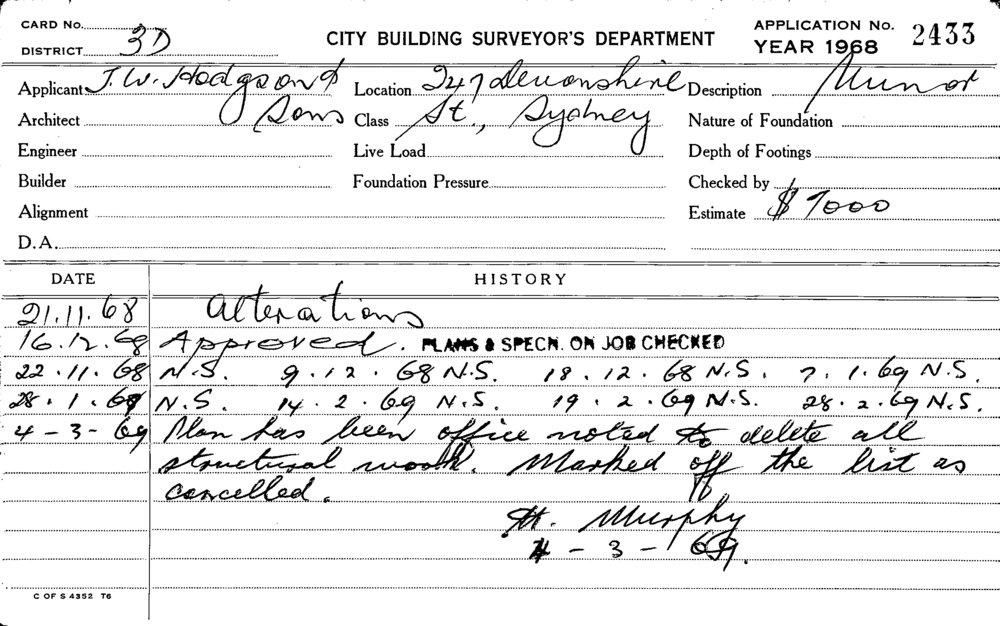 CARD No.
DISTRICT 3D
CITY BUILDING SURVEYOR'S DEPARTMENT
APPLICATION No. 2433
YEAR 1968
Applicant J. W. Hodgson &
Location 247 Devonshire
Description Minor
Architect Sons
Class St., Sydney
Nature of Foundation
Engineer
Live Load
Depth of Footings
Builder
Foundation Pressure
Checked by
Alignment
Estimate $ 7000
D.A.
DATE HISTORY
21.11.68 Alterations
16.12.68 Approved. PLANS & SPECN. ON JOB CHECKED
22.11.68 N.S. 9.12.68 N.S. 18.12.68 N.S. 7.1.69 N.S.
28.1.69 N.S. 14.2.69 N.S. 19.2.69 N.S. 28.2.69 N.S.
4-3-69 Plan has been office noted to delete all
structural work. Marked off the list as
cancelled.
H. Murphy
4-3-69.
C OF S 4352 T6